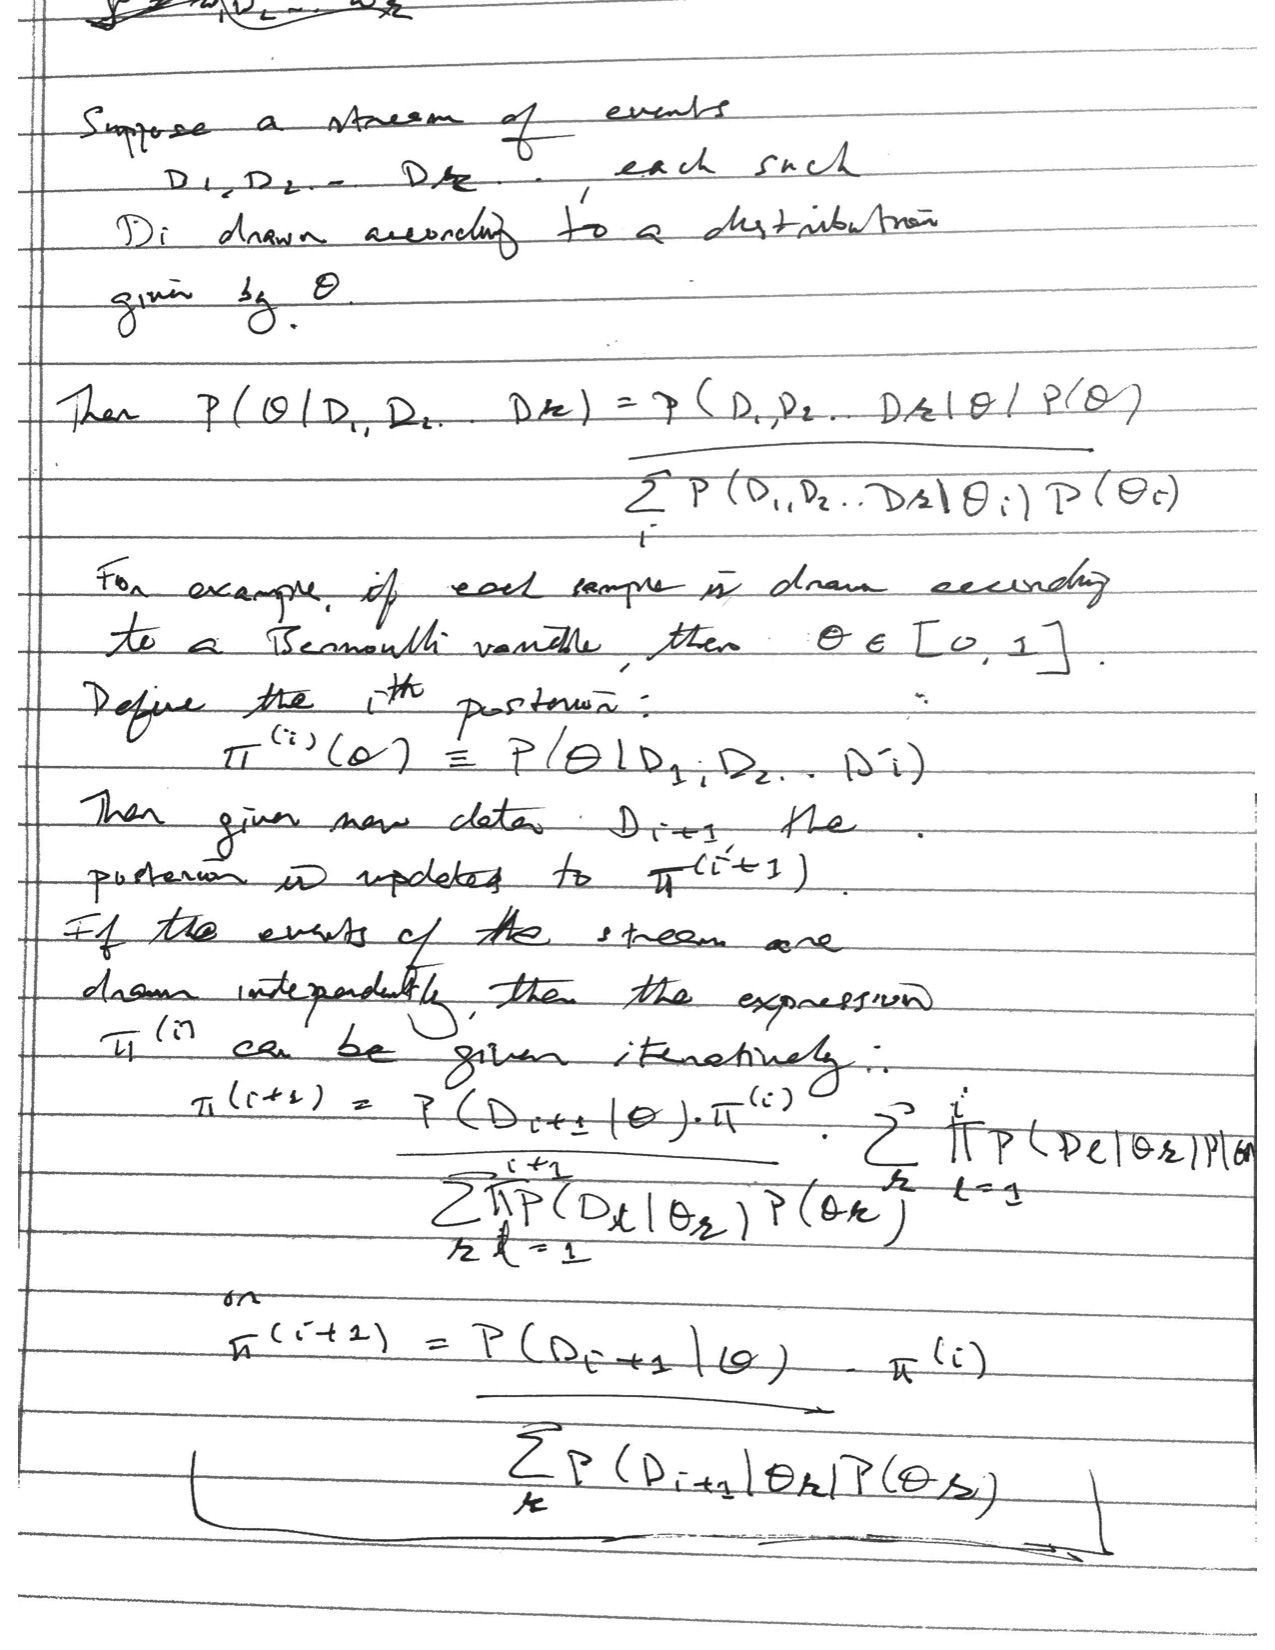 Suppose a stream of events
D1, D2 .. Dk . , each such
Di drawn according to a distribution
given by θ.
Then P(θ|D1, D2.. Dk) = P(D1, D2.. Dk|θ) P(θ)
Σ_i P(D1, D2.. Dk|θi) P(θi)
For example, if each sample is drawn according
to a Bernoulli variable, then θ ∈ [0, 1].
Define the ith posterior:
π^(i)(θ) ≡ P(θ|D1, D2.. Di)
Then given new data Di+1, the
posterior is updated to π^(i+1).
If the events of the stream are
drawn independently, then the expression
π^(i) can be given iteratively:
π^(i+1) = P(Di+1|θ).π^(i) . Σ_k Π_{l=1}^{i} P(Dl|θk) P(θ
Σ_k Π_{l=1}^{i+1} P(Dl|θk) P(θk)
or
π^(i+1) = P(Di+1|θ) . π^(i)
Σ_k P(Di+1|θk) P(θk)